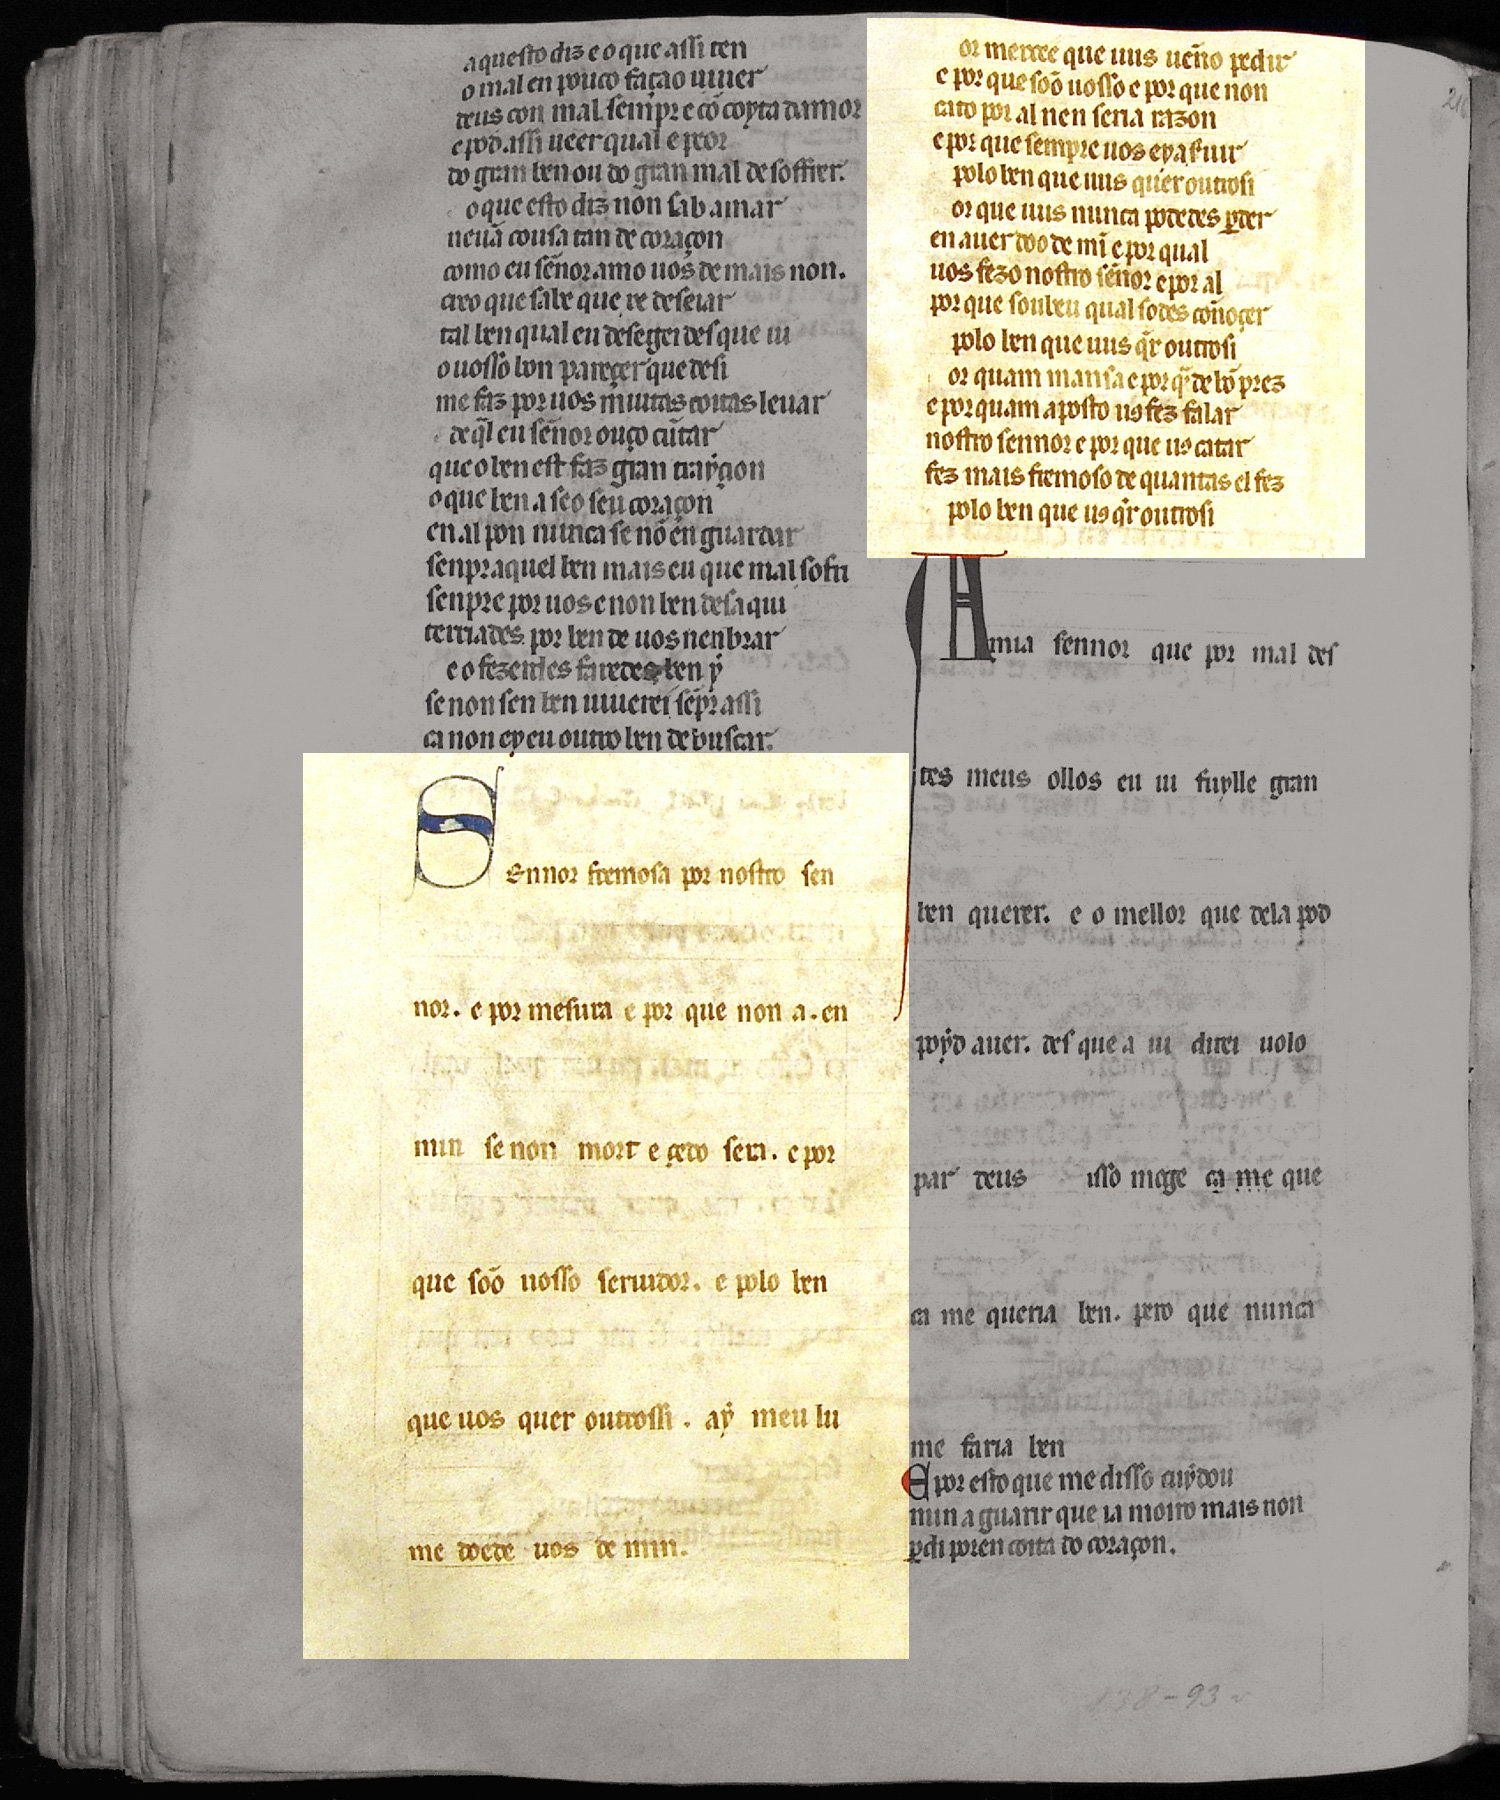 aquesto diz e o que assi ten
o mal en pouco façao uiuer
deus con mal. sempre e cõ coyta damor
e pod assi ueer qual e peor
do gran ben ou do gran mal de soffrer.
o que esto diz non sab amar
neuã cousa tan de coraçon
como eu señor amo uos de mais non.
creo que sabe que re deseiar
tal ben qual eu desegei des que ui
o uosso bon pareçer que desi
me faz por uos muitas coitas leuar
de q̃l eu señor ouço cũtar
que o ben est faz gran trayçon
o que ben a seo seu coraçon
en al pon nunca se nõ en guardar
senpr aquel ben mais eu que mal sofri
senpre por uos e non ben des aqui
terriades por ben de uos nenbrar
e o fezerdes faredes ben ẏ
se non sen ben uiuerei sẽpr assi
ca non ey eu outro ben de buscar.
Sennor fremosa por nostro sen
nor. e por mesura e por que non a. en
min se non mort e çedo sera. e por
que soõ uosso seruidor. e polo ben
que uos quer outrossi. aẏ meu lu
me doede uos de min.
or merçee que uus ueño pedir
e por que soõ uosso e por que non
cato por al nen seria razon
e por que sempre uos ey a seruir
polo ben que uus quer outrosi
or que uus nunca podedes ꝑder
en auer doo de mĩ e por qual
uos fezo nostro señor e por al
por que soubeu qual sodes coñoçer
polo ben que uus q̃r outrosi
or quam mansa e por q̃ de bõ prez
e por quam aposto uꝯ fez falar
nostro sennor e por que uꝯ catar
fez mais fremoso de quantas el fez
polo ben que uꝯ q̃r outrosi
A mia sennor que por mal des
tes meus ollos eu ui fuylle gran
ben querer. e o mellor que dela pod
poẏd auer. des que a ui direi uolo
par deus isso mege ca me que
ca me queria ben. pero que nunca
me faria ben
E por esto que me disso cuẏdou
min a guarir que ia moiro mais non
ꝑdi por en coita do coraçon.
138-93 v